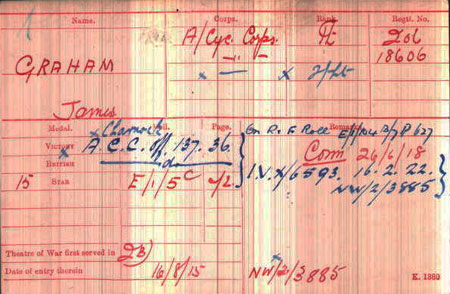 Name. Corps. Rank. Regtl. No.
GRAHAM
A/Cyc. Corps. Pte 206
x — " — x 2/Lt 18606
James
Charnock
Medal. Roll. Page. Remarks.
On R.E Roll
Victory x A.C.C. Off. 137. 36.
British — do —
Com 26/6/18
15 Star E/1/5c 42
I.V.X/6593. 16.2.22.
NW/2/3885
Theatre of War first served in (2B)
Date of entry therein 16/8/15 NW/2/3885 K. 1380